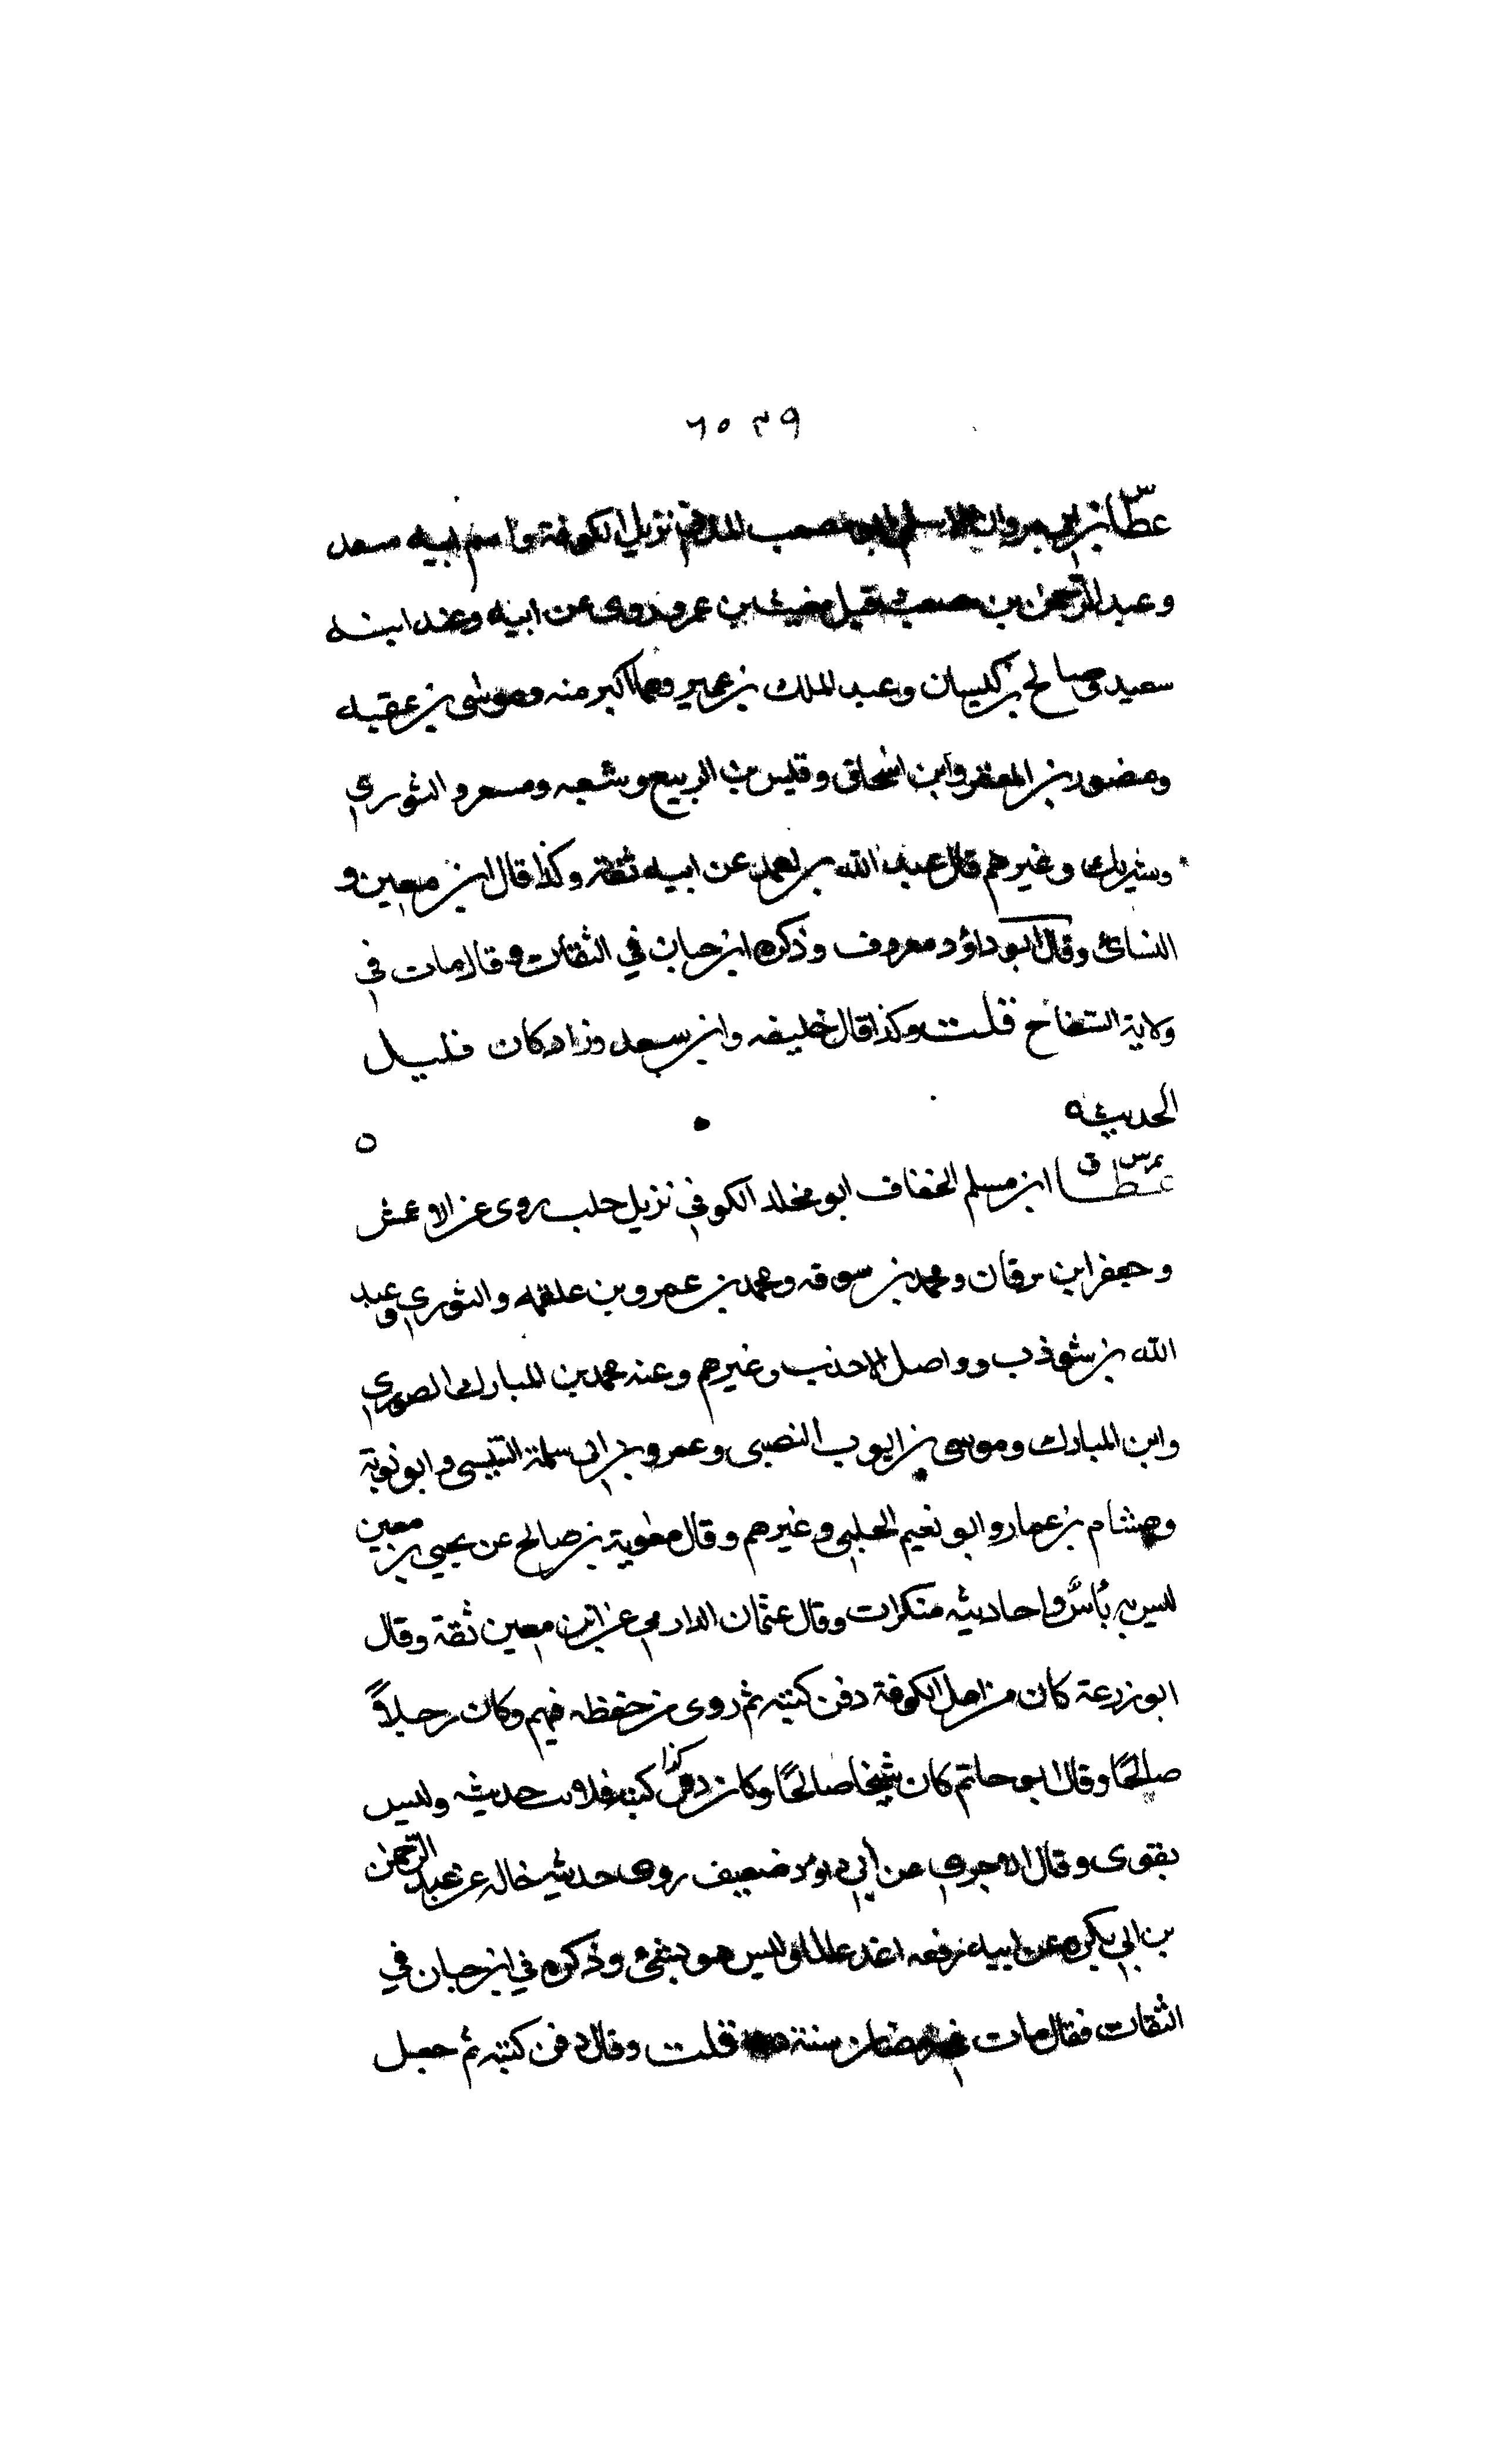 ٩ ٣ ٥ ٦
س
عطا بن ابي مروان الاسلمي ابو مصعب المدني نزيل الكوفة واسم ابيه سعد
وعبد الرحمن بن مصعب وقيل مغيث بن عمرو روى عن ابيه وعنه ابنه
سعيد وصالح بن كيسان وعبد الملك بن عمير وهما اكبر منه وموسى بن عقبه
ومنصور بن المعتمر وابن اسحاق وقيس بن الربيع وشعبه ومسعر والثوري
وشريك وغيرهم قال عبد الله بن احمد عن ابيه ثقة وكذا قال ابن معين و
النسائ وقال ابو داؤد معروف وذكره ابن حبان في الثقات وقال مات في
ولاية السفاح قلت وكذا قال خليفه وابن سعد وزاد كان قليل
الحديث ه
ه
تمس ق
عطا ابن مسلم الخفاف ابو مخلد الكوفي نزيل حلب روى عن الاعمش
وجعفر ابن برقان ومحمد بن سوقه ومحمد بن عمرو بن علقمه والثوري وعبد
الله بن شوذب وواصل الاحدب وغيرهم وعنه محمد بن المبارك الصوري
وابن المبارك وموسى بن ايوب النصبى وعمرو بن ابى سلمة التنيسى و ابو توبة
وهشام بن عمار و ابو نعيم الحلبى وغيرهم وقال معوية بن صالح عن يحيى بن معين
ليس به بأس واحاديثه منكرات وقال عثمان الدارمي عن ابن معين ثقة وقال
ابو زرعة كان من اهل الكوفة دفن كتبه ثم روى من حفظه فيهم وكان رجلاً
صالحًا وقال ابو حاتم كان شيخا صالحًا وكان دفن كذا كتبه فلا يثبت حديثه وليس
بقوى وقال الاجرى عن ابي داود ضعيف روى حديث خالد عن عبد الرحمن
بن ابي بكره عن ابيه رفعه اغد عالما وليس هو بشئ وذكره في ابن حبان في
الثقات فقال مات في رمضان سنة قلت وقال دفن كتبه ثم جعل